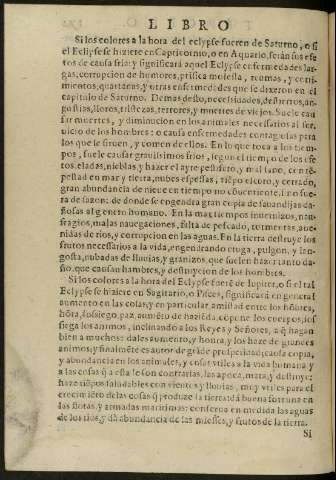 LIBRO
Si los colores a la hora del eclypse fueren de Saturno, o si
el Eclypse se hiziere en Capricornio, o en Aquario, serán sus efe
tos de causa fria: y significará aquel Eclypse enfermedades lar-
gas, corrupcion de humores, prisica molesta, reumas, y corri-
mientos, quartanas, y otras enfermedades que se dixeron en el
capitulo de Saturno. Demas desto, necessidades, destierros, an-
gustias, lloros, tristezas, terrores, y muertes de viejos. Suele cau
sar muertes, y diminucion en los animales necessarios al ser-
uicio de los hombres: o causa enfermedades contagiosas para
los que se siruen, y comen de ellos. En lo que toca a los tiem-
pos, suele causar grauissimos frios, segun el tiempo de los efe
tos, eladas, nieblas, y hazer el ayre pestifero, y mal sano, con tē-
pestad en mar y tierra, nubes espessas, tiēpo escuro, y cerrado,
gran abundancia de nieue en tiempo no cōueniente, sino fue-
ra de sazon: de donde se engendra gran copia de sauandijas da-
ñosas al genero humano. En la mar, tiempos inuernizos, nau-
fragios, malas nauegaciones, falta de pescado, tormentas, aue-
nidas de rios, y corrupcion en las aguas. En la tierra destruye los
frutos necessarios a la vida, engendrando oruga, pulgon, y lan-
gosta, nubadas de lluuias, y granizos, que suelen hazer tanto da-
ño, que causan hambres, y destruycion de los hombres.
Si los colores a la hora del Eclypse fuerē de Iupiter, o si el tal
Eclypse se hiziere en Sagitario, o Pisces, significará en general
aumento en las cosas, y en particular, amistad entre los hōbres,
hōra, sossiego, paz, aumēto de haziēda, cōpone los cuerpos, sos
siega los animos, inclinando a los Reyes y Señores, a q̄ hagan
bien a muchos: dales aumento, y honra, y los haze de grandes
animos, y finalmēte es autor de grāde prosperidad; causa copia,
y abundancia en los animales, y cosas vtiles a la vida humana y
a las cosas q̄ a esta le son contrarias, las apoca, mata, y destruye:
haze tiēpos saludables con vientos y lluuias, muy vtiles para el
crecimiēto de las cosas q̄ produze la tierra: dá buena fortuna en
las flotas, y armadas maritimas: conserua en medida las aguas
de los rios, y dà abundancia de las miesses, y frutos de la tierra.
Si